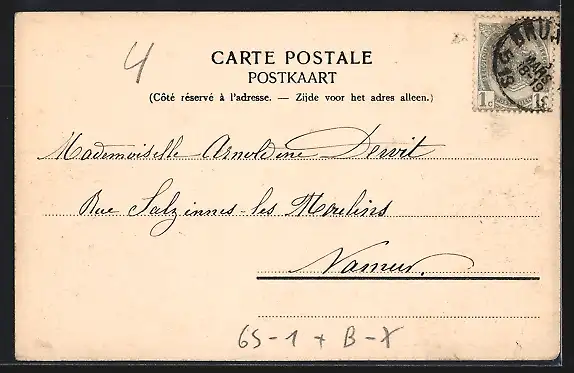 4
CARTE POSTALE
POSTKAART
(Côté réservé à l'adresse. — Zijde voor het adres alleen.)
1c 1c
BRUX
MARS
Mademoiselle Arnoldine Dewit
Rue Salzinnes-les Moulins
Namur.
6S-1 + B-X